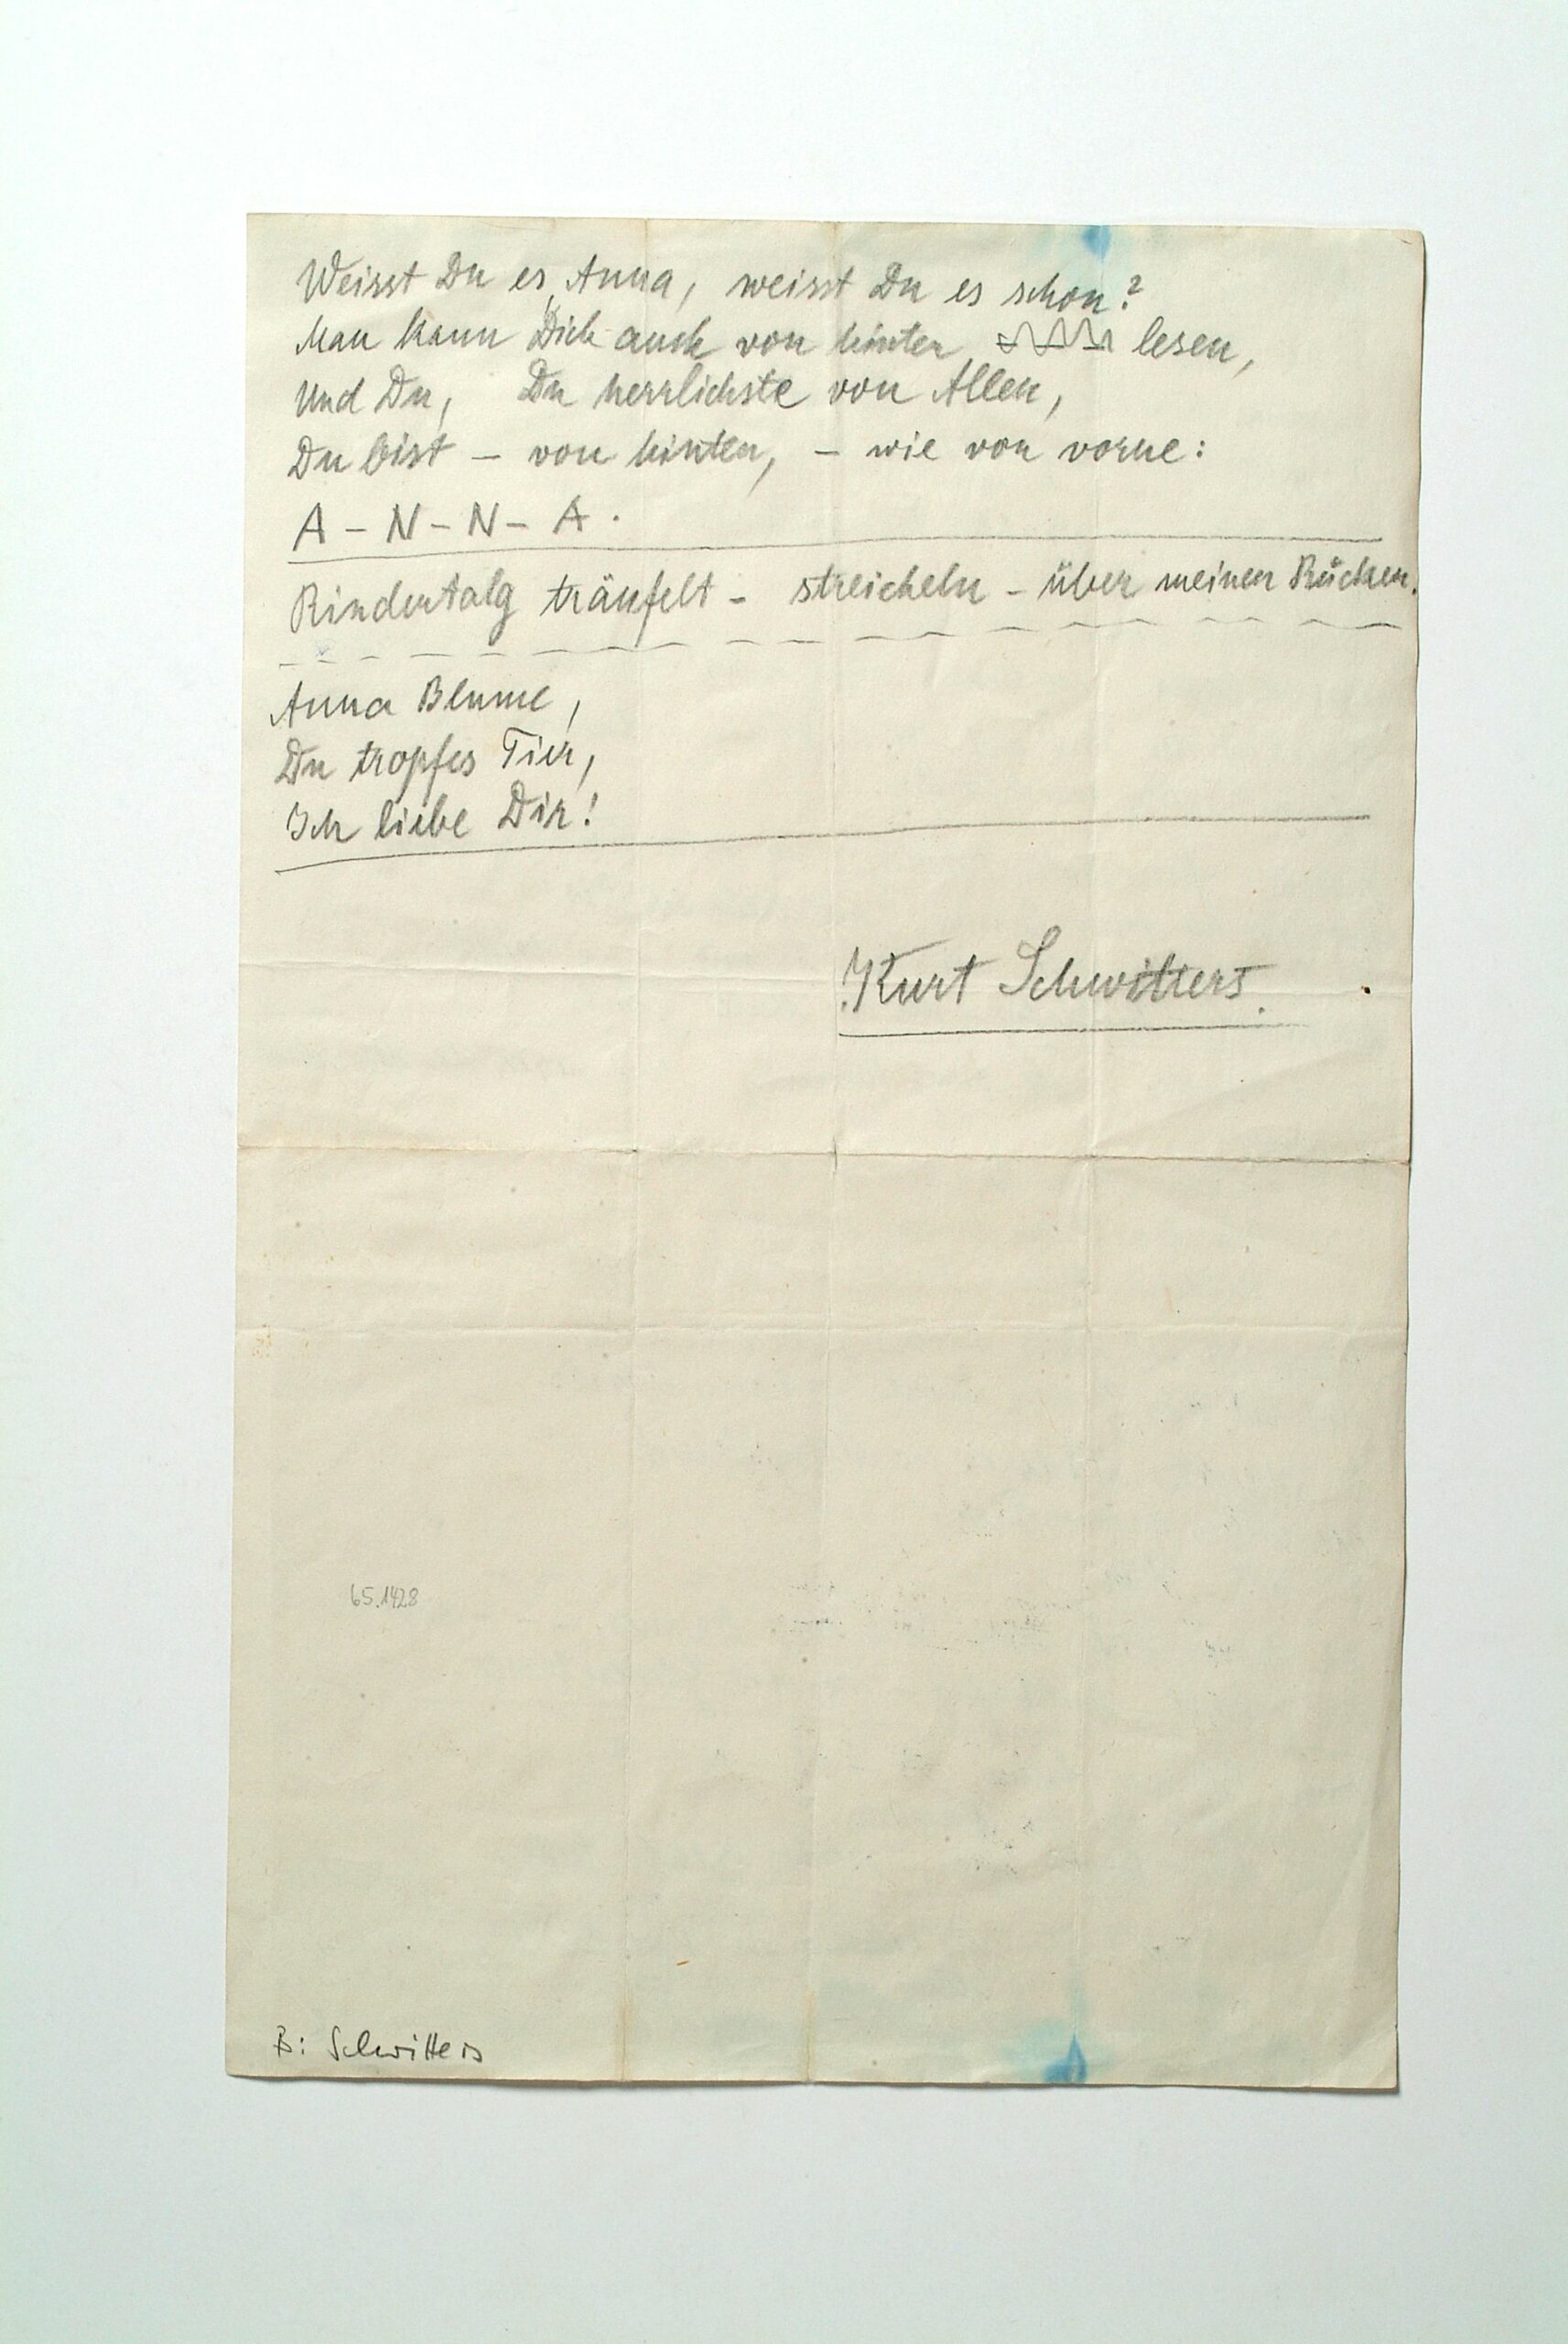 Weisst Du es, Anna, weisst Du es schon?
Man kann Dich auch von hinten lesen,
Und Du, Du herrlichste von Allen,
Du bist – von hinten, – wie von vorne:
A – N – N – A .
Rindertalg träufelt – streicheln – über meinen Rücken.
Anna Blume,
Du tropfes Tier,
Ich liebe Dir!
Kurt Schwitters.
65.1428
B: Schwitters